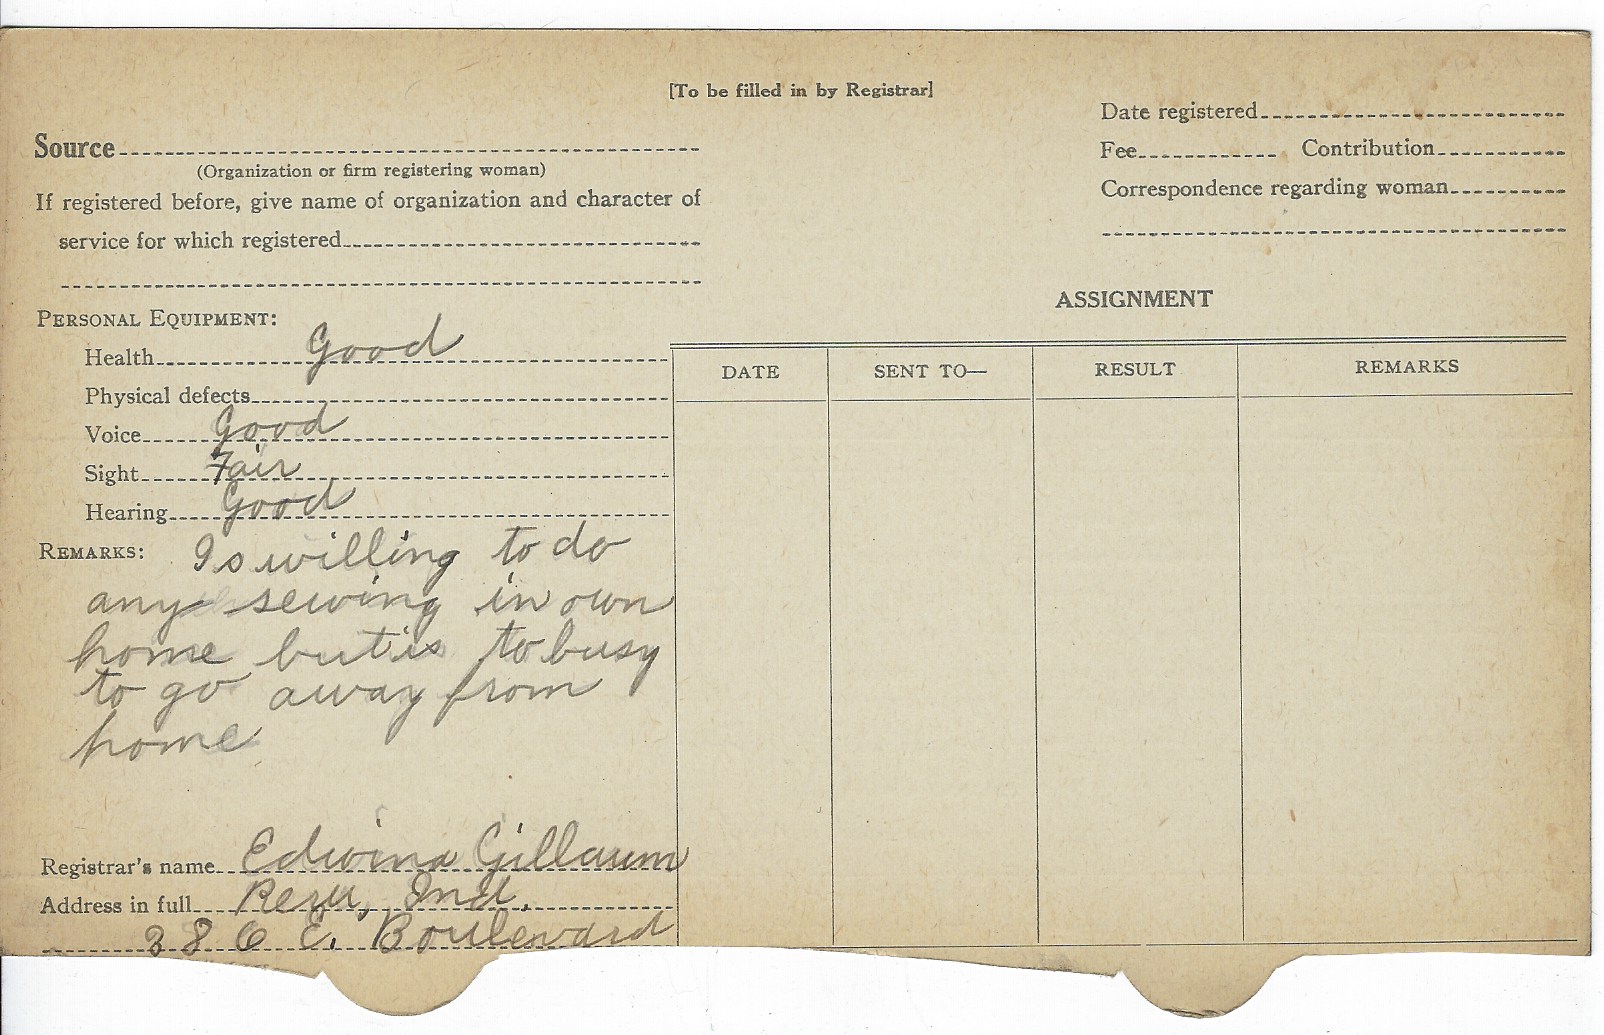 [To be filled in by Registrar]
Source
(Organization or firm registering woman)
If registered before, give name of organization and character of
service for which registered
PERSONAL EQUIPMENT:
Health Good
Physical defects
Voice Good
Sight Fair
Hearing Good
REMARKS: Is willing to do
any sewing in own
home but is to busy
to go away from
home
Registrar's name Edwina Gillaum
Address in full Peru, Ind.
386 E. Boulevard
Date registered
Fee Contribution
Correspondence regarding woman
ASSIGNMENT
DATE SENT TO— RESULT REMARKS